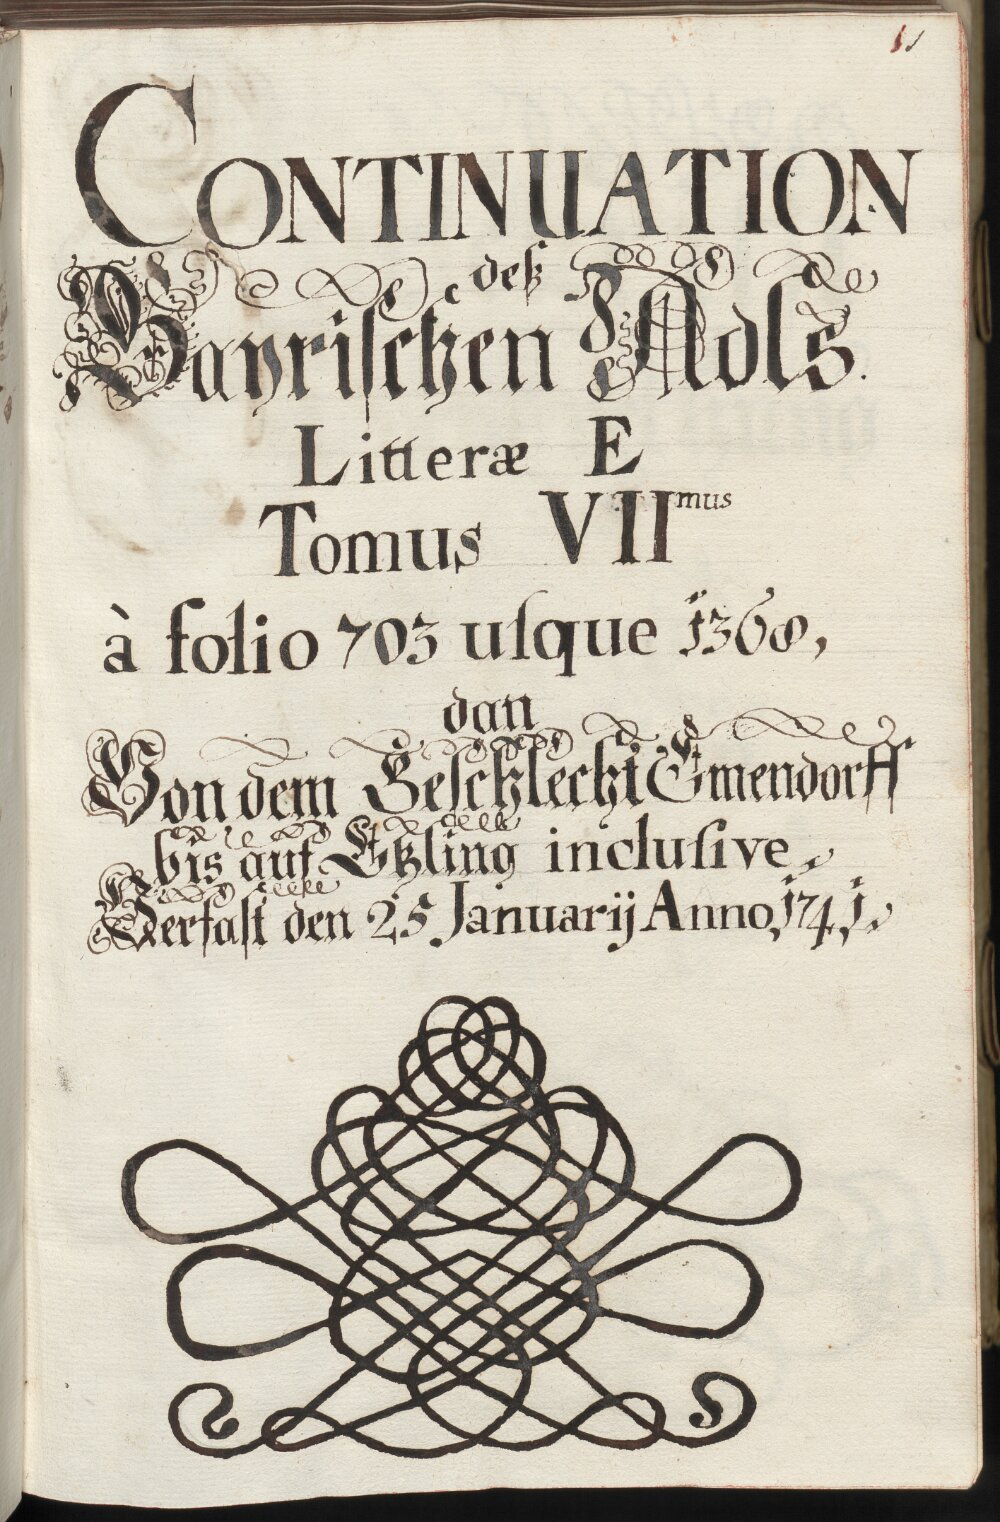 11
CONTINUATION
deß
Bayrischen Adls.
Litteræ E
Tomus VII mus
à folio 703 usque 1368,
dan
Von dem Geschlecht Emendorff
bis auf Etzling inclusive,
Verfast den 25 Januarij Anno 1741,